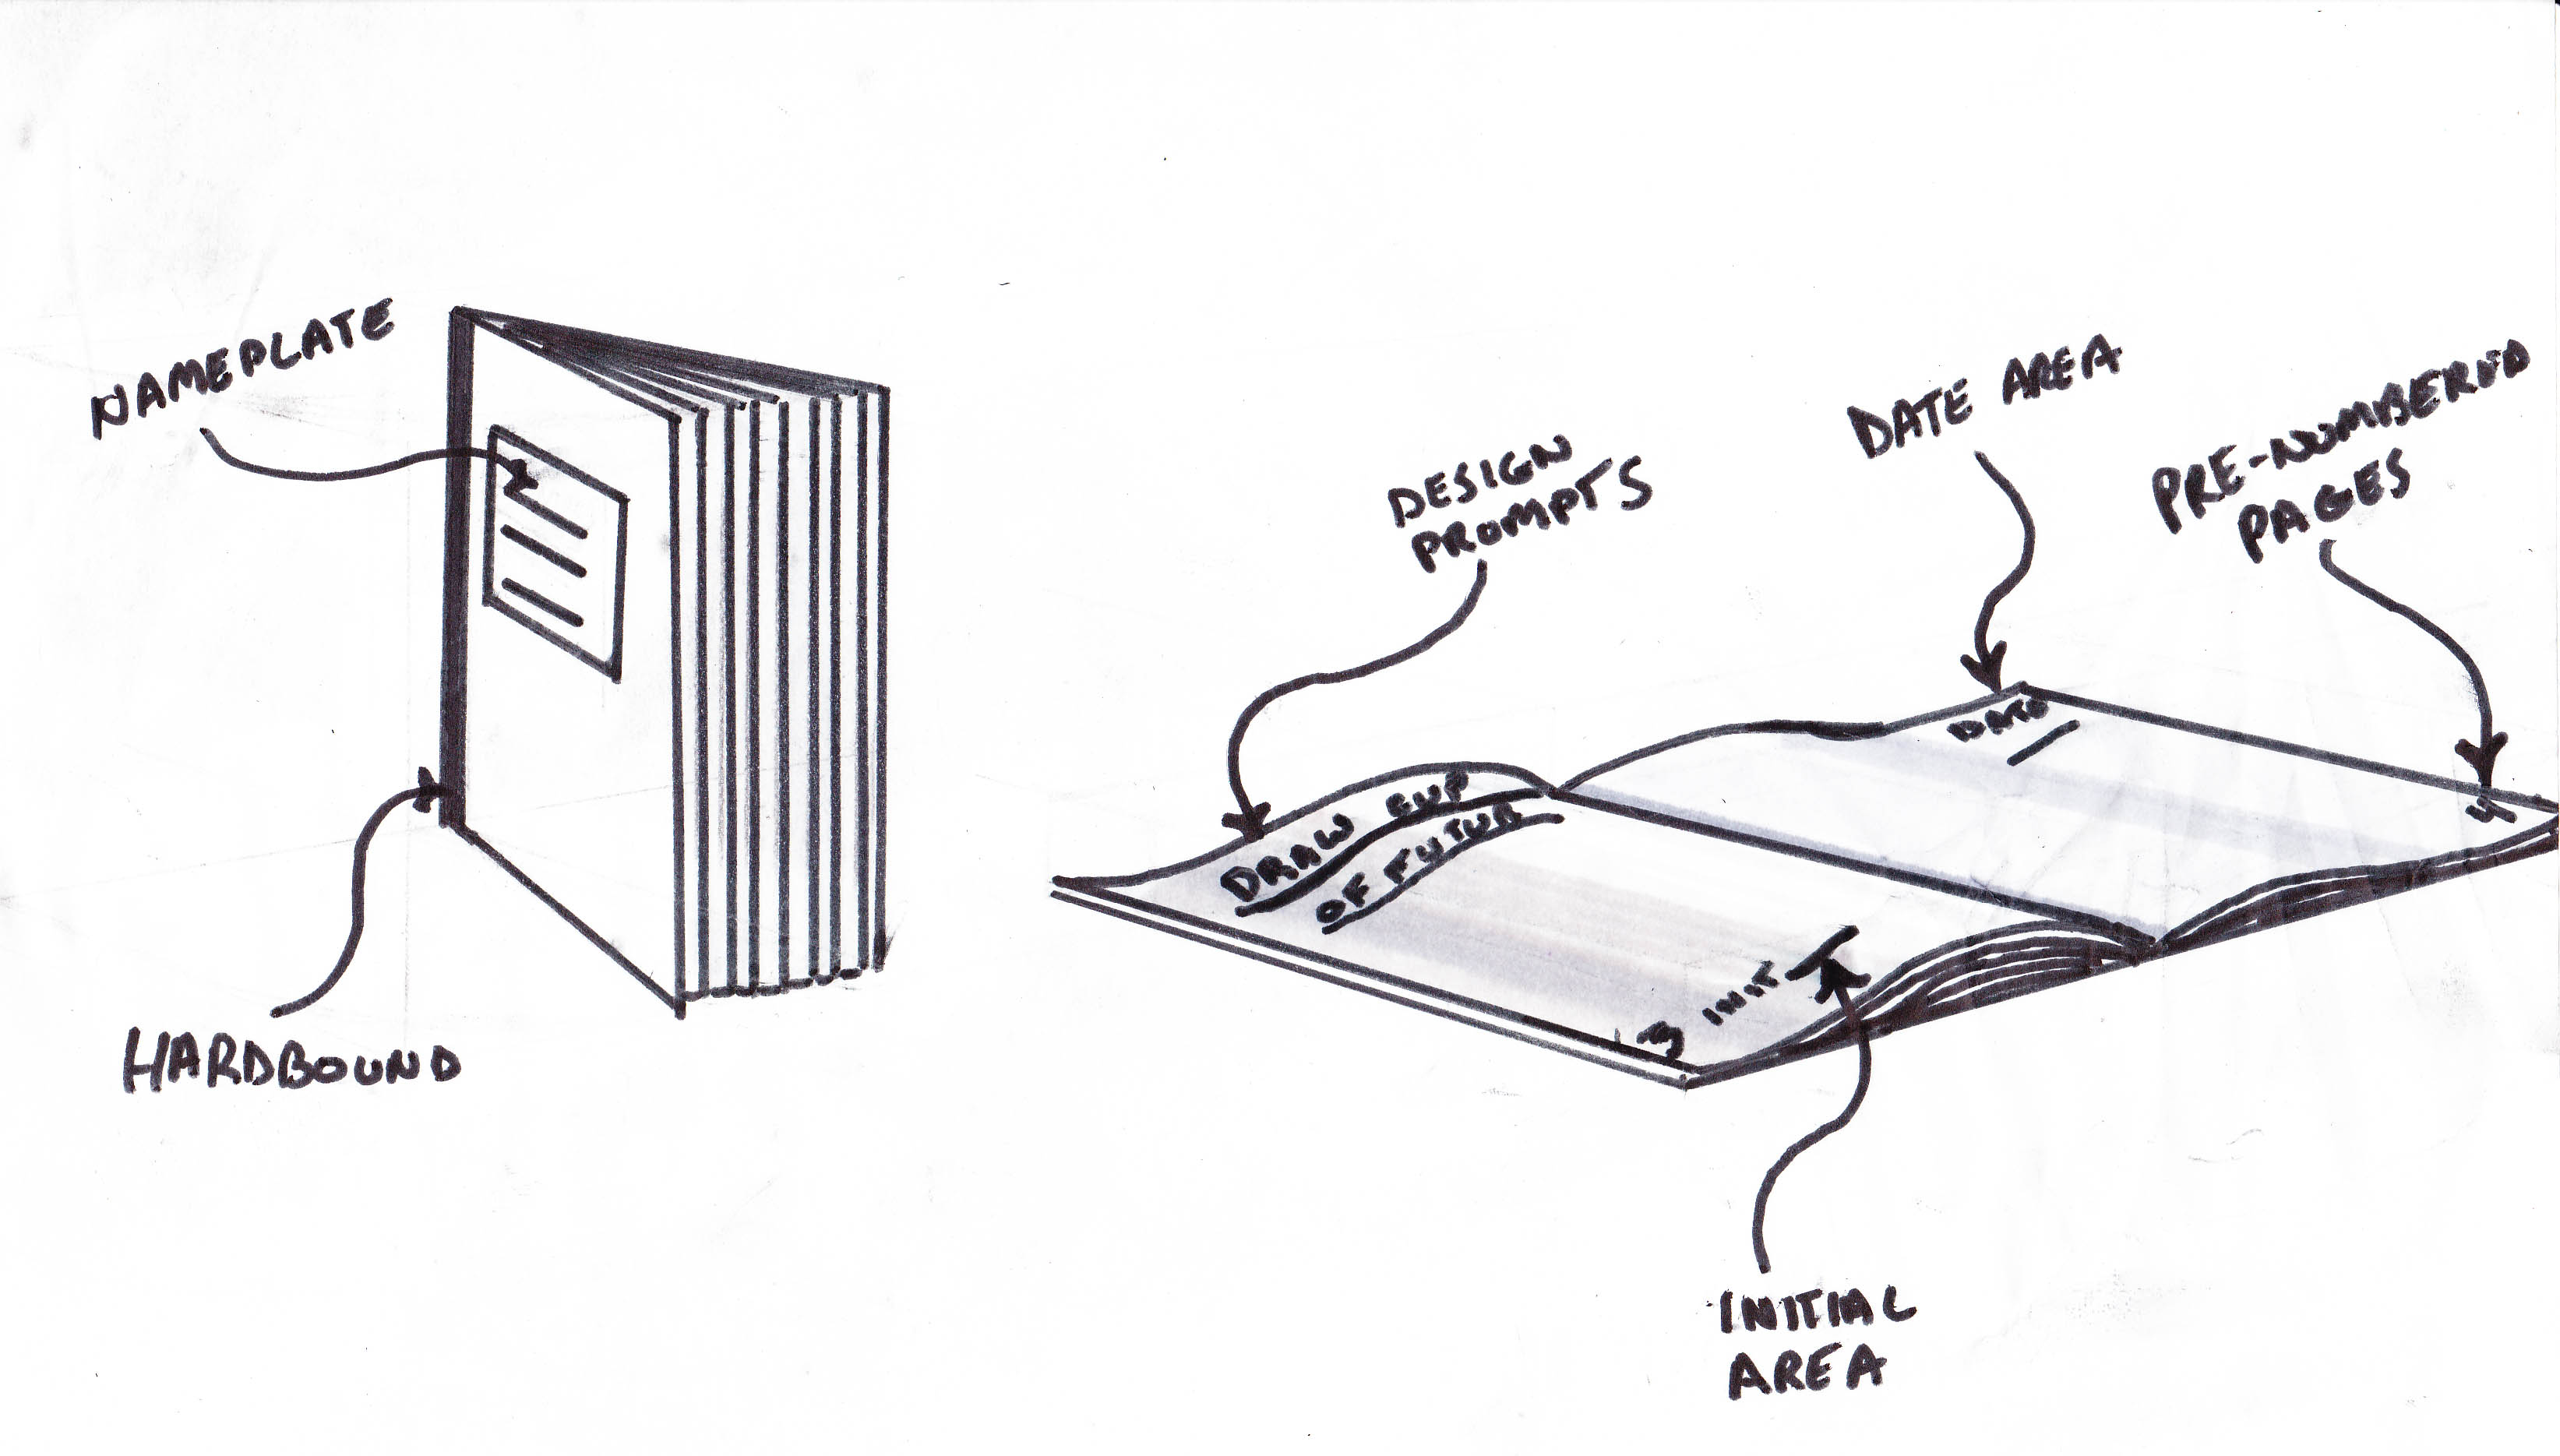 NAMEPLATE
HARDBOUND
DESIGN
PROMPTS
DATE AREA
PRE-NUMBERED
PAGES
DRAW CUP
OF FUTUR
DATE
INIT
3
4
INITIAL
AREA